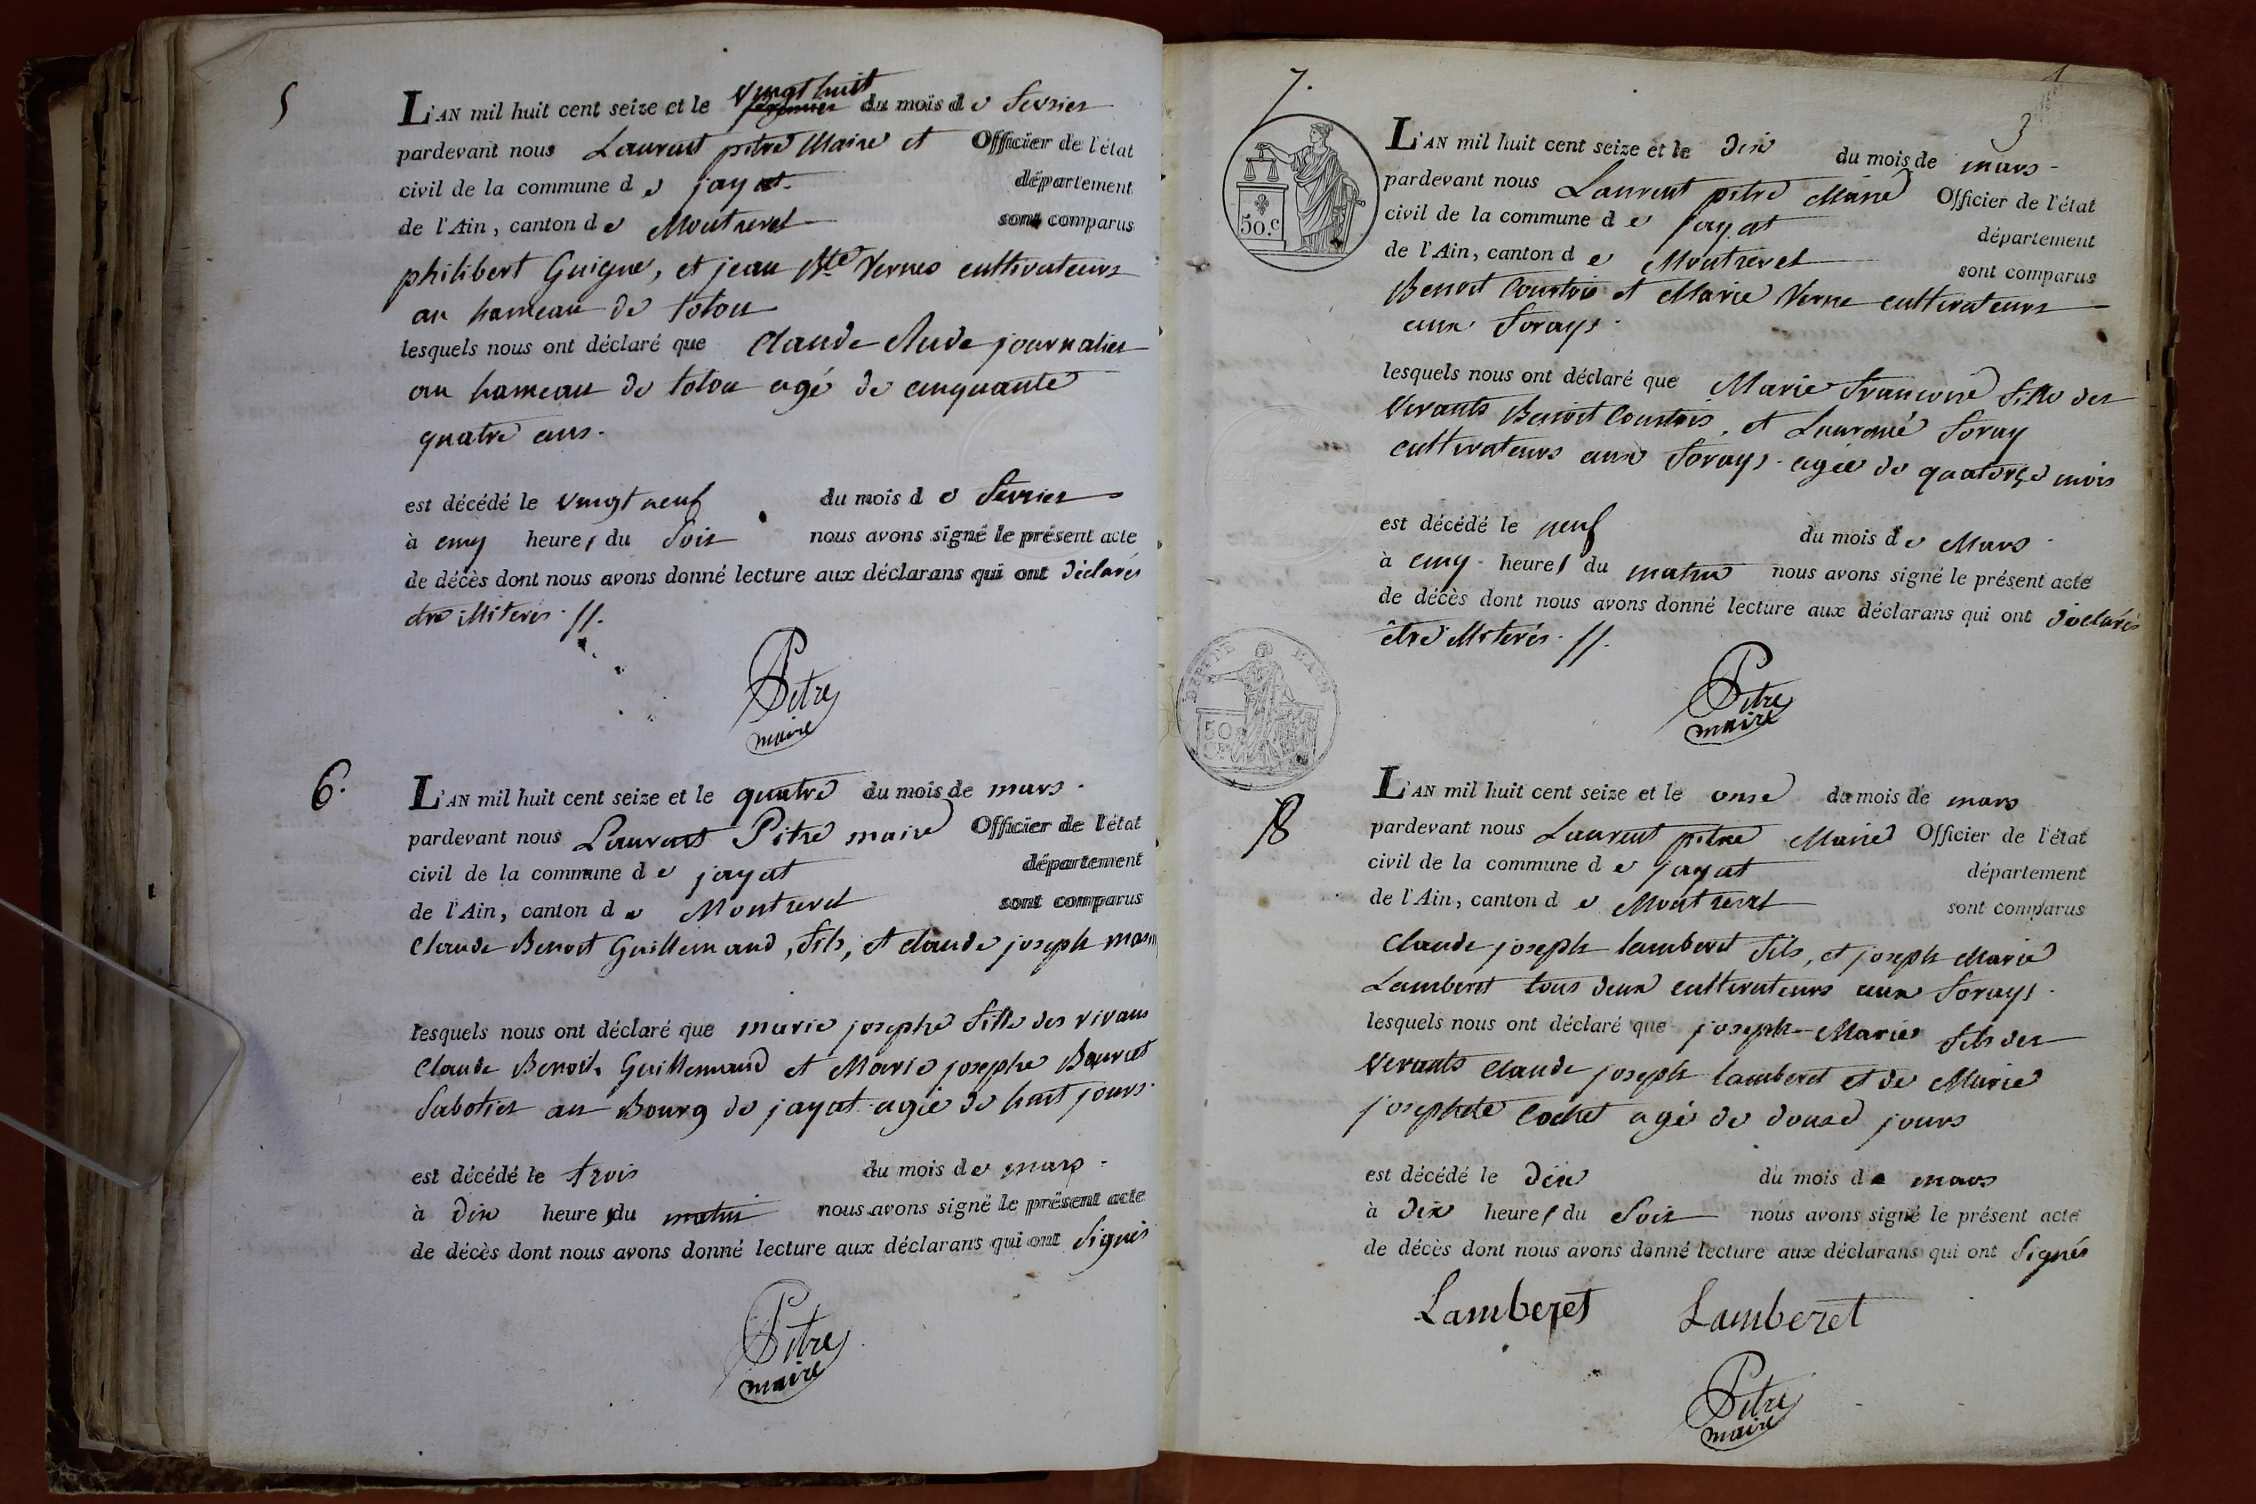 5
L'AN mil huit cent seize et le vingt huit du mois de fevrier
pardevant nous Laurent pitre Maire et Officier de l'état
civil de la commune de jayat département
de l'Ain, canton de Montrevel sont comparus
philibert Guigue, et jean Bte Vernes cultivateurs
au hameau de tolou
lesquels nous ont déclaré que Claude journalier
au hameau de tolou agé de cinquante
quatre ans.
est décédé le vingt neuf du mois de fevrier
à cinq heures du soir nous avons signé le présent acte
de décès dont nous avons donné lecture aux déclarans qui ont déclarés
être illiterés. //.
Pitre
maire
6.
L'AN mil huit cent seize et le quatre du mois de mars.
pardevant nous Laurent Pitre maire Officier de l'état
civil de la commune de jayat département
de l'Ain, canton de Montrevel sont comparus
Claude Benoit Guillemaud, fils, et claude joseph
lesquels nous ont déclaré que marie josephe fille des vivans
Claude Benoit Guillemaud et Marie josephe
Sabotier au Bourg de jayat agée de huit jours.
est décédé le trois du mois de mars.
à dix heures du matin nous avons signé le présent acte
de décès dont nous avons donné lecture aux déclarans qui ont signés
Pitre
maire
7.
3
50.c
L'AN mil huit cent seize et le dix du mois de mars
pardevant nous Laurent pitre Maire Officier de l'état
civil de la commune de jayat département
de l'Ain, canton de Montrevel sont comparus
Benoit Courtois et Marie Verne cultivateurs
aux forays.
lesquels nous ont déclaré que Marie francoise fille des
vivants Benoit Courtois, et foray
cultivateurs aux forays agée de quatorze mois
est décédé le neuf du mois de Mars.
à cinq heures du matin nous avons signé le présent acte
de décès dont nous avons donné lecture aux déclarans qui ont déclarés
être illiterés. //.
DEPT DE L'AIN
50
Pitre
maire
8
L'AN mil huit cent seize et le onse du mois de mars
pardevant nous Laurent pitre Maire Officier de l'état
civil de la commune de jayat département
de l'Ain, canton de Montrevel sont comparus
Claude joseph lamberet fils, et joseph Marie
Lamberet tous deux cultivateurs aux forays.
lesquels nous ont déclaré que joseph Marie fils des
vivants Claude joseph lamberet et de Marie
josephte Cochet agé de douse jours
est décédé le dix du mois de mars
à dix heures du soir nous avons signé le présent acte
de décès dont nous avons donné lecture aux déclarans qui ont signés
Lamberet Lamberet
Pitre
maire